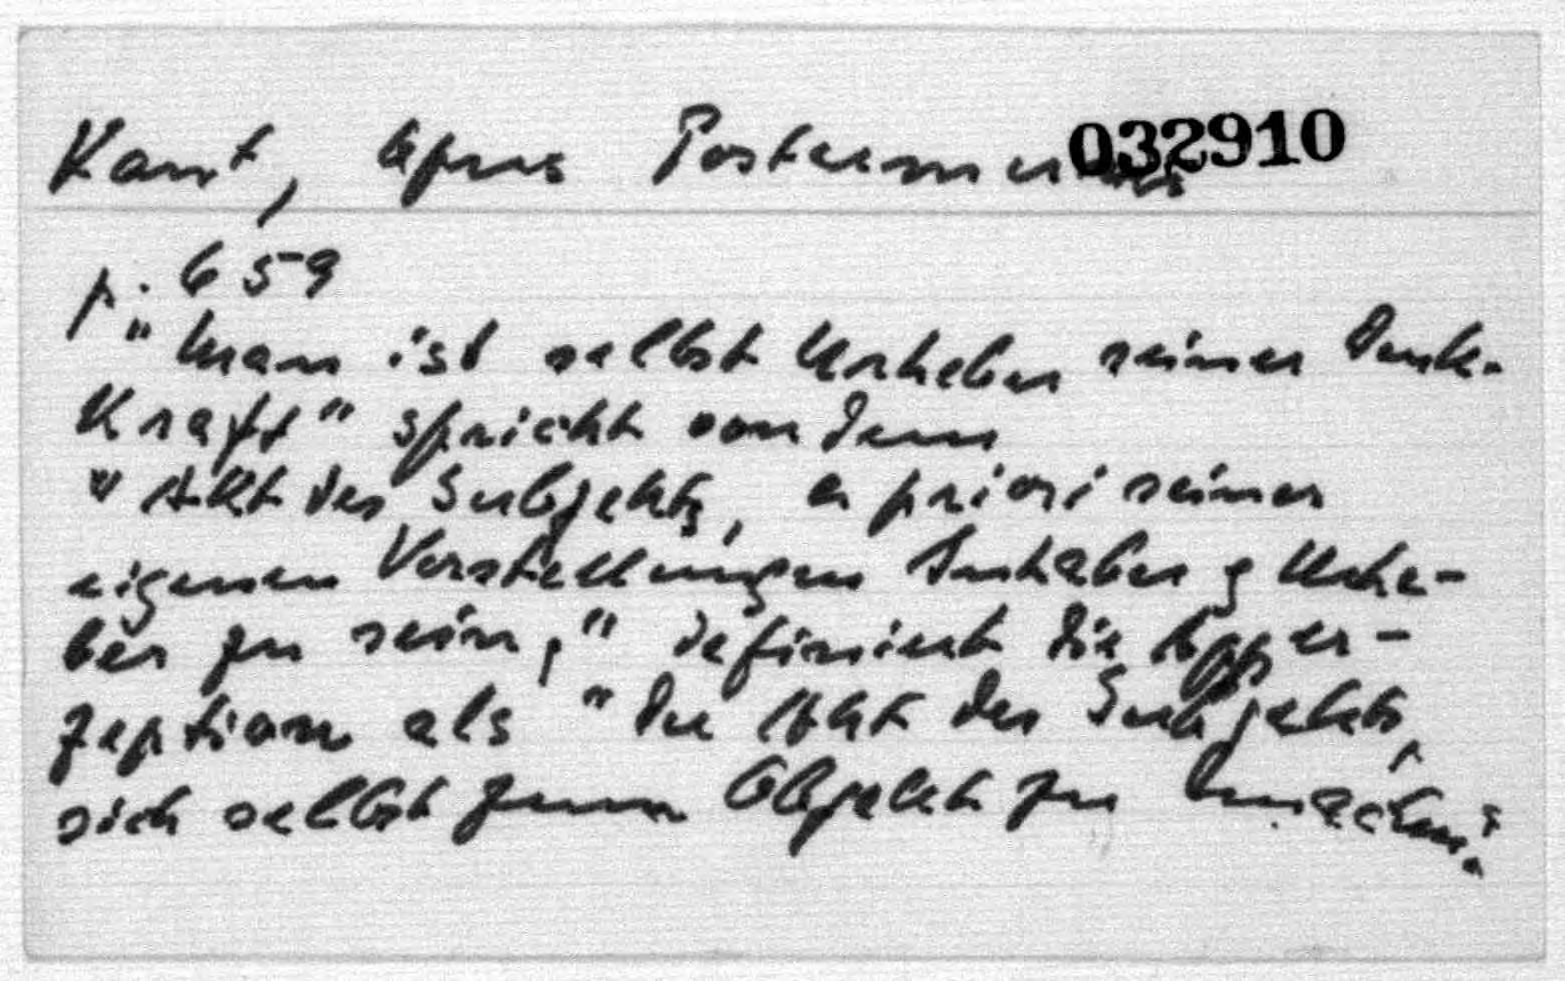 Kant, Opus Postumum 032910
p. 659
"Man ist selbst Urheber seiner Denk-
Kraft" spricht von dem
"Akt des Subjekts, a priori seiner
eigenen Vorstellungen Inhaber & Urhe-
ber zu sein," definiert die Apper-
zeption als "der Akt des Subjekts,
sich selbst zum Objekt zu machen."